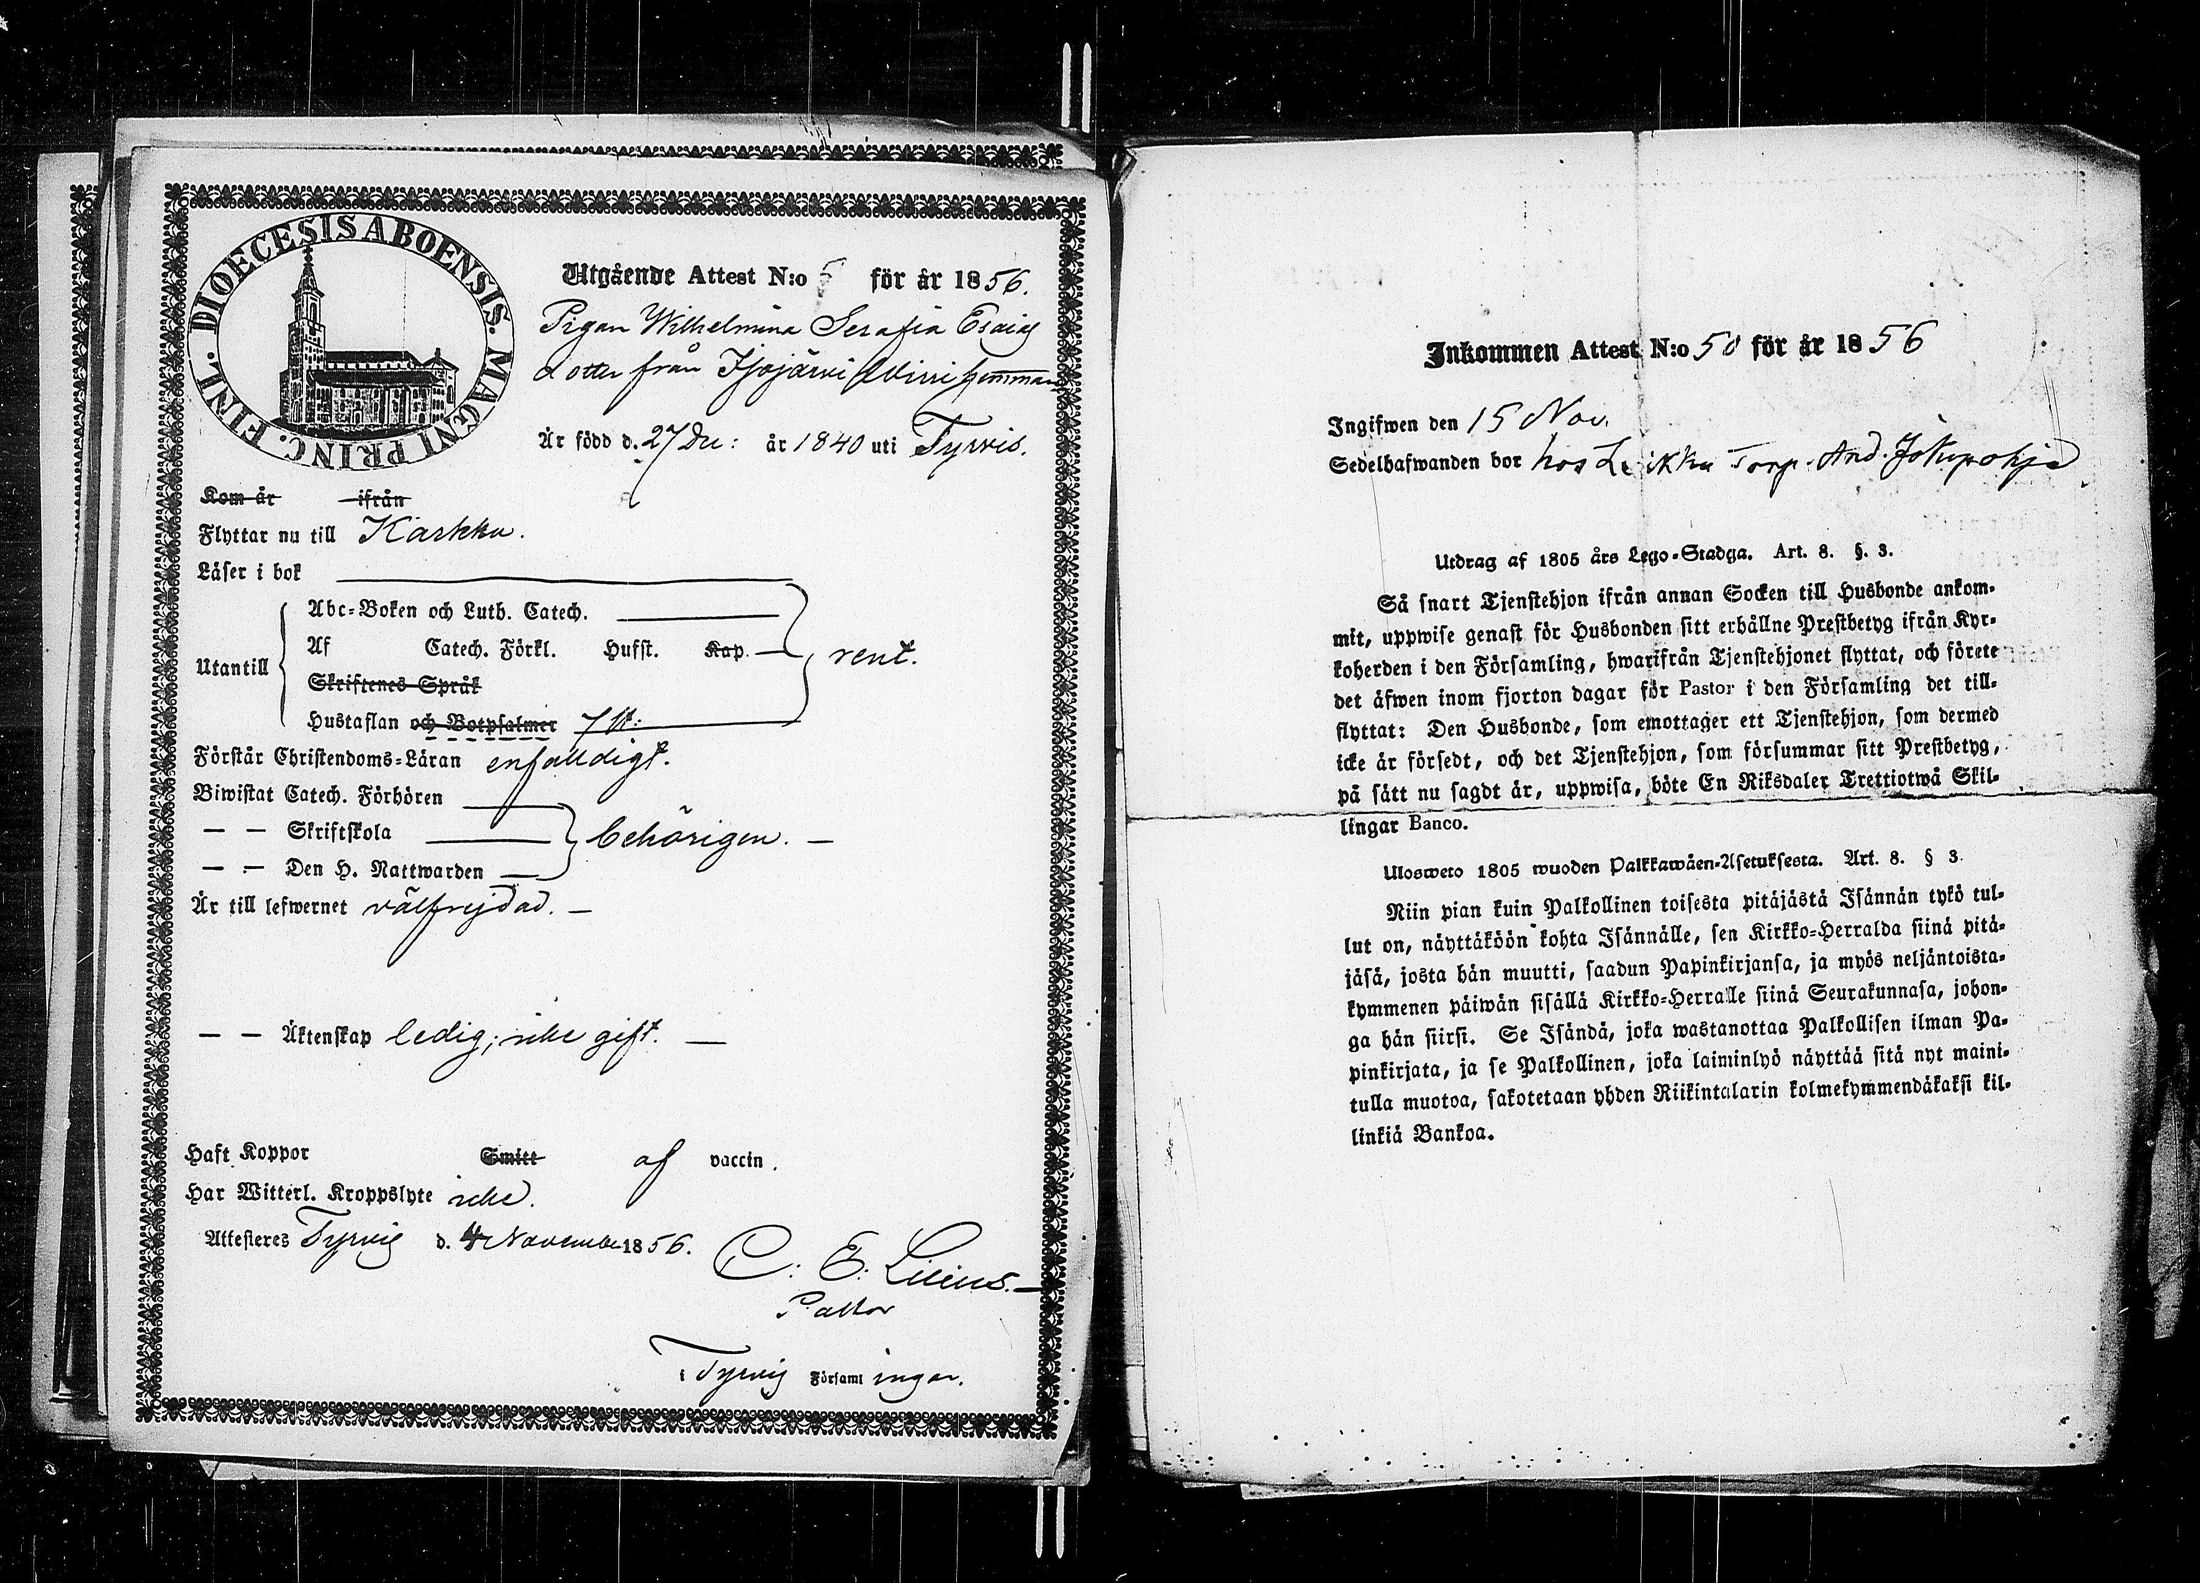 DIOECESIS ABOENSIS. MAGNI PRINC. FINL.
Utgående Attest N:o 5 för år 1856.
Pigan Wilhelmina Serafia Esaias
dotter från Kjojärvi Wirri hemman
Är född d. 27 Dec: år 1840 uti Tyrvis.
Kom år ifrån
Flyttar nu till Karkku.
Läser i bok
Abc-Boken och Luth. Catech.
Af Catech. Förkl. Hufst. Kap.
Utantill rent.
Skriftenes Språk
Hustaflan och Botpsalmer 7 st:
Förstår Christendoms-Läran enfalldigt.
Biwistat Catech. Förhören
— — Skriftskola behörigen. —
— — Den H. Nattwarden
Är till lefwernet välfrejdad. —
— — Äktenskap ledig; icke gift. —
Haft Koppor Smitt af vaccin.
Har Witterl. Kroppslyte icke.
Attesteres Tyrvis d. 4 November 1856.
C: E: Lilius.
Pastor
i Tyrvis Församlingar.
Inkommen Attest N:o 50 för år 1856
Ingifwen den 15 Nov.
Sedelhafwanden bor hos Torp. And. Jokipohja
Utdrag af 1805 års Lego-Stadga. Art. 8. §. 3.
Så snart Tjenstehjon ifrån annan Socken till Husbonde ankom-
mit, uppwise genast för Husbonden sitt erhållne Prestbetyg ifrån Kyr-
koherden i den Församling, hwarifrån Tjenstehjonet flyttat, och förete
det äfwen inom fjorton dagar för Pastor i den Församling det till-
flyttat: Den Husbonde, som emottager ett Tjenstehjon, som dermed
icke är försedt, och det Tjenstehjon, som försummar sitt Prestbetyg,
på sätt nu sagdt är, uppwisa, böte En Riksdaler Trettiotwå Skil-
lingar Banco.
Ulosweto 1805 wuoden Palkkawäen-Asetuksesta. Art. 8. § 3.
Niin pian kuin Palkollinen toisesta pitäjästä Isännän tykö tul-
lut on, näyttäköön kohta Isännälle, sen Kirkko-Herralda siinä pitä-
jäsä, josta hän muutti, saadun Papinkirjansa, ja myös neljäntoista-
kymmenen päiwän sisällä Kirkko-Herralle siinä Seurakunnasa, johon-
ga hän siirsi. Se Isändä, joka wastanottaa Palkollisen ilman Pa-
pinkirjata, ja se Palkollinen, joka laiminlyö näyttää sitä nyt maini-
tulla muotoa, sakotetaan yhden Riikintalarin kolmekymmendäkaksi kil-
linkiä Bankoa.